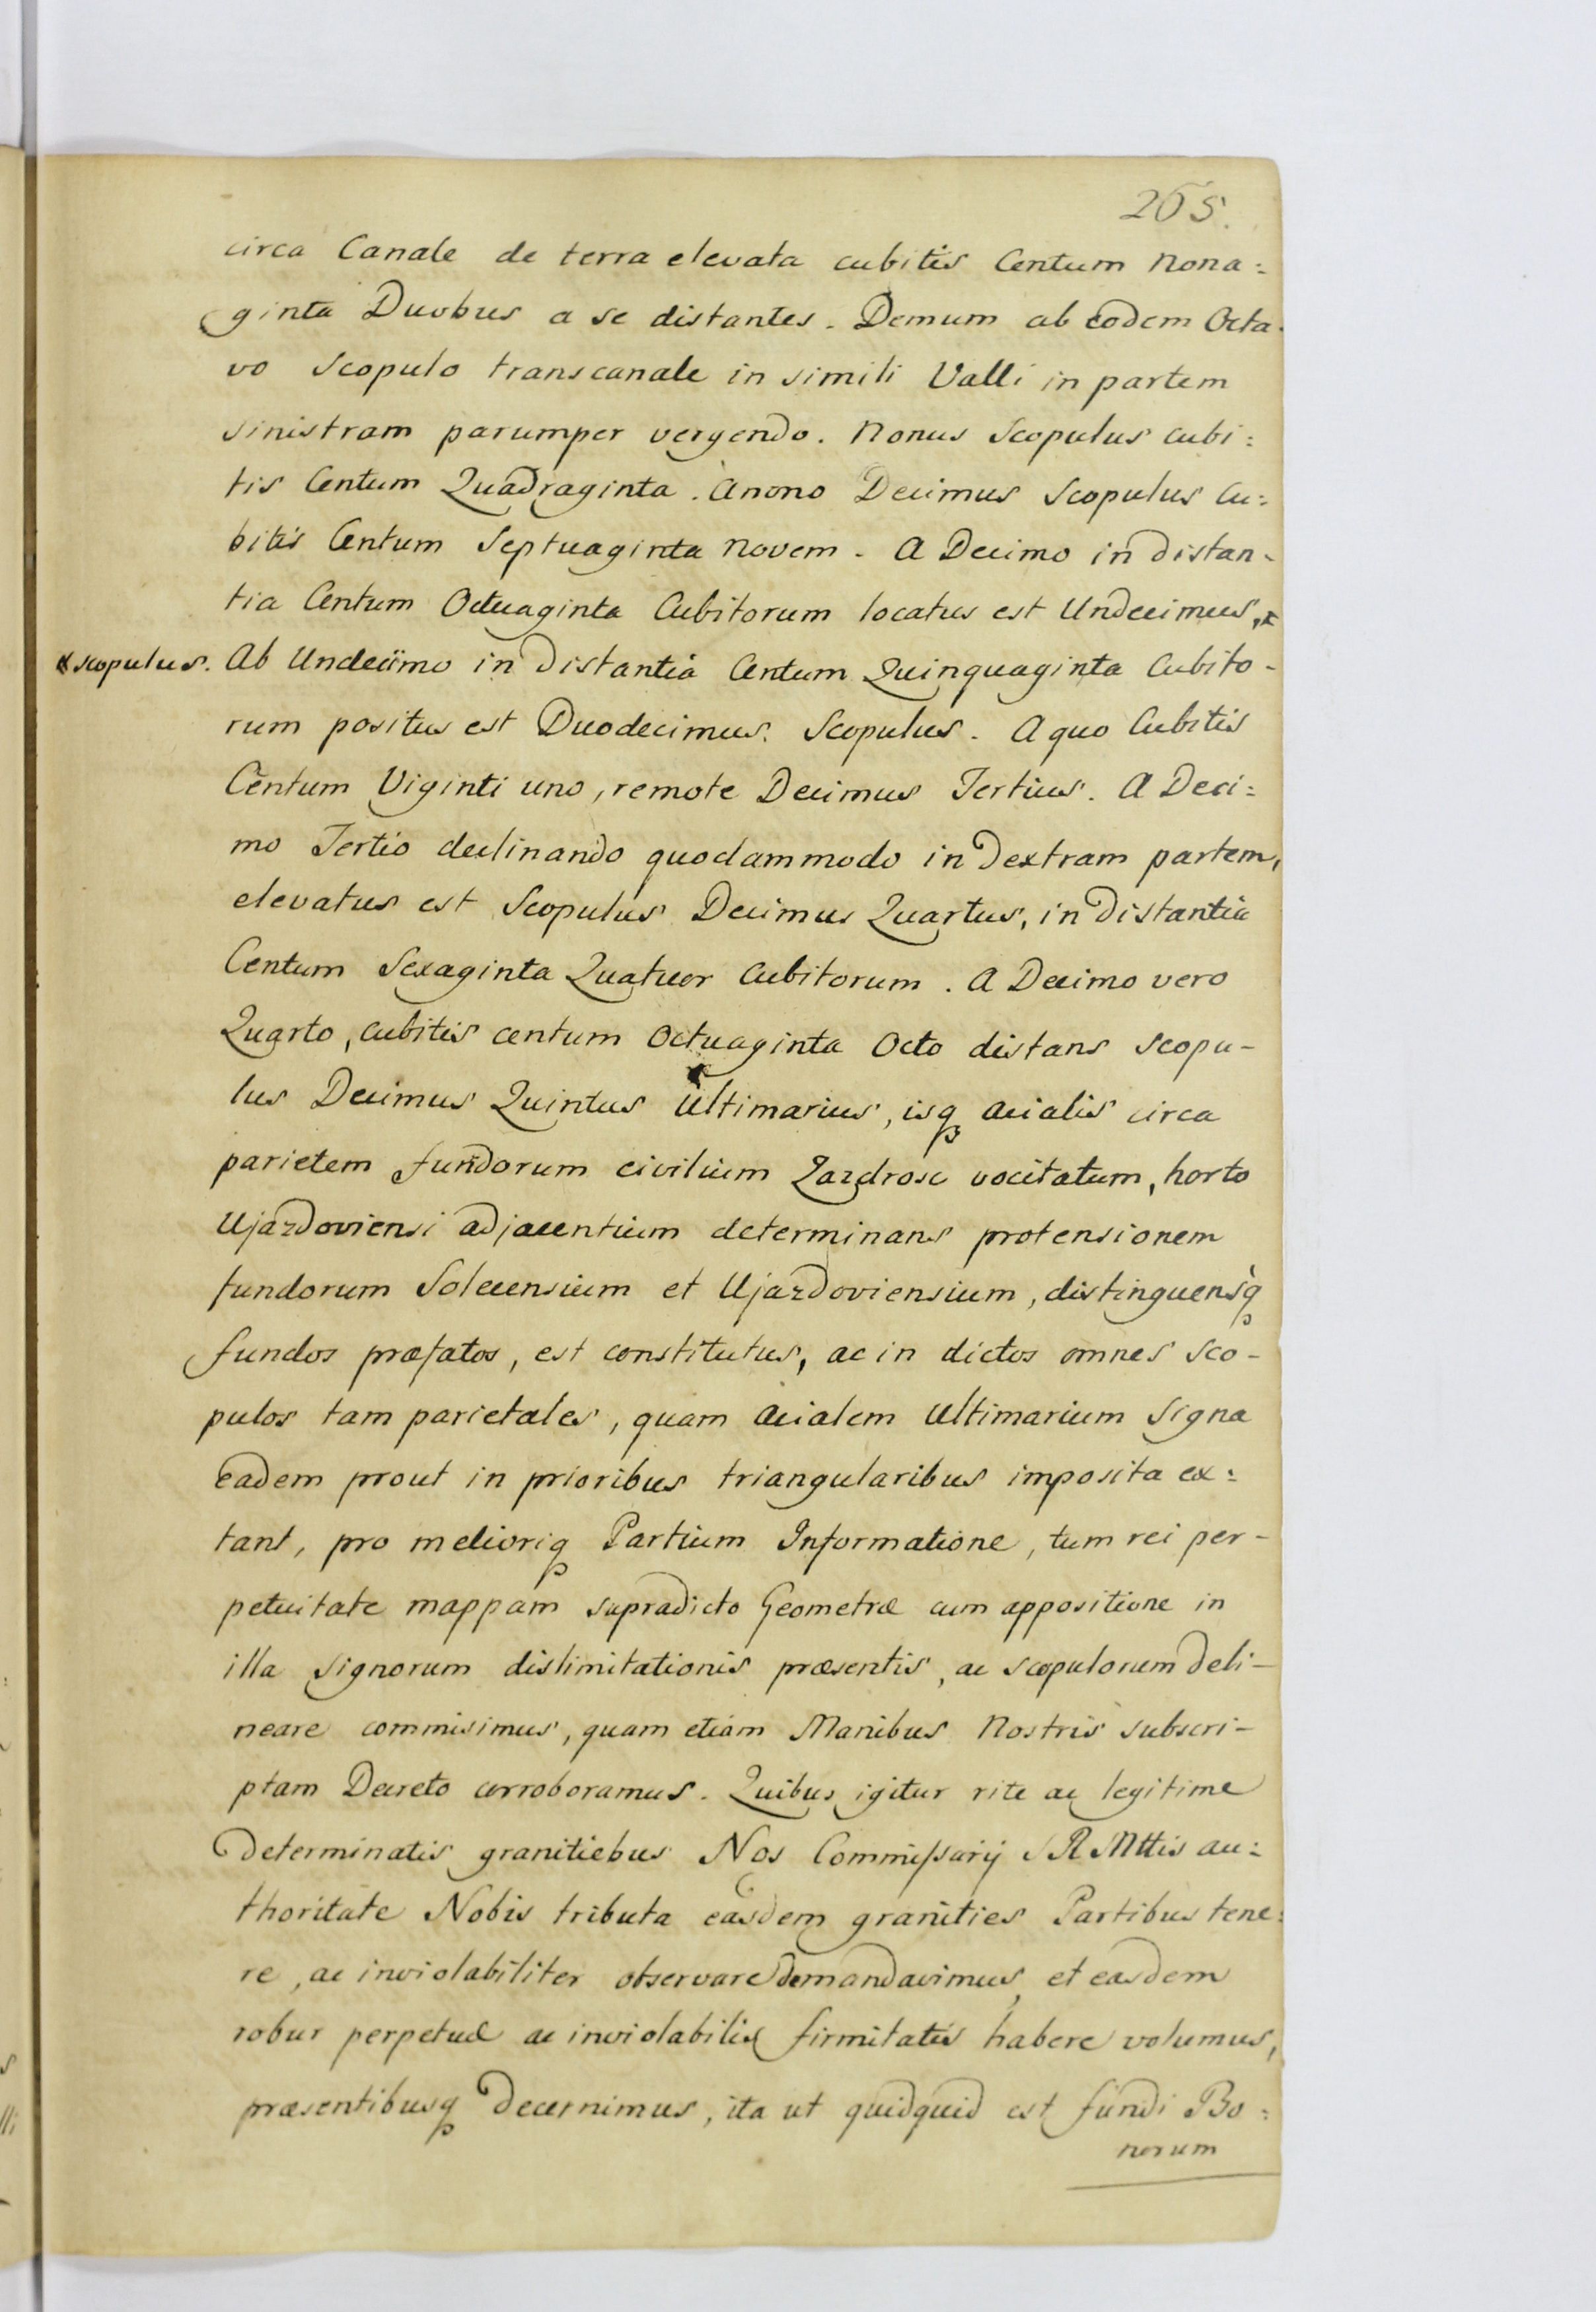 265.
circa Canale de terra elevata cubitis Centum Nona:
ginta Duobus a se distantes. Demum ab eodem Octa:
vo Scopulo transcanale in simili Valli in partem
sinistram parumper vergendo. Nonus Scopulus cubi:
tis Centum Quadraginta. Anono Decimus Scopulus Cu:
bitis Centum Septuaginta Novem. A Decimo in distan-
tia Centum Octuaginta Cubitorum locatus est Undecimus, x
x scopulus. Ab Undecimo in distantia Centum Quinquaginta Cubito-
rum positus est Duodecimus. Scopulus. A quo Cubitis
Centum Viginti uno, remote Decimus Tertius. A Deci:
mo Tertio declinando quodammodo in Dextram partem,
elevatus est Scopulus Decimus Quartus, in distantia
Centum Sexaginta Quatuor Cubitorum. A Decimo vero
Quarto, cubitis centum Octuaginta Octo distans scopu-
lus Decimus Quintus Ultimarius, isq acialis circa
parietem fundorum civilium Zazdrosc vocitatum, horto
Ujazdoviensi adjacentium determinans protensionem
fundorum Solecensium et Ujazdoviensium, distinguensq
fundos præfatos, est constitutus, ac in dictos omnes Sco-
pulos tam parietales, quam Acialem Ultimarium Signa
eadem prout in prioribus triangularibus imposita ex:
tant, pro melioriq Partium Informatione, tum rei per-
petuitate mappam supradicto Geometræ cum appositione in
illa signorum dislimitationis præsentis, ac scopulorum deli-
neare commisimus, quam etiam Manibus Nostris subscri-
ptam Decreto corroboramus. Quibus igitur rite ac legitime
determinatis granitiebus Nos Commissarij S R Mttis au:
thoritate Nobis tributa easdem granities Partibus tene:
re, ac inviolabiliter observare demandavimus, et easdem
robur perpetuæ ac inviolabilis firmitatis habere volumus,
præsentibusq decernimus, ita ut quidquid est fundi Bo:
norum